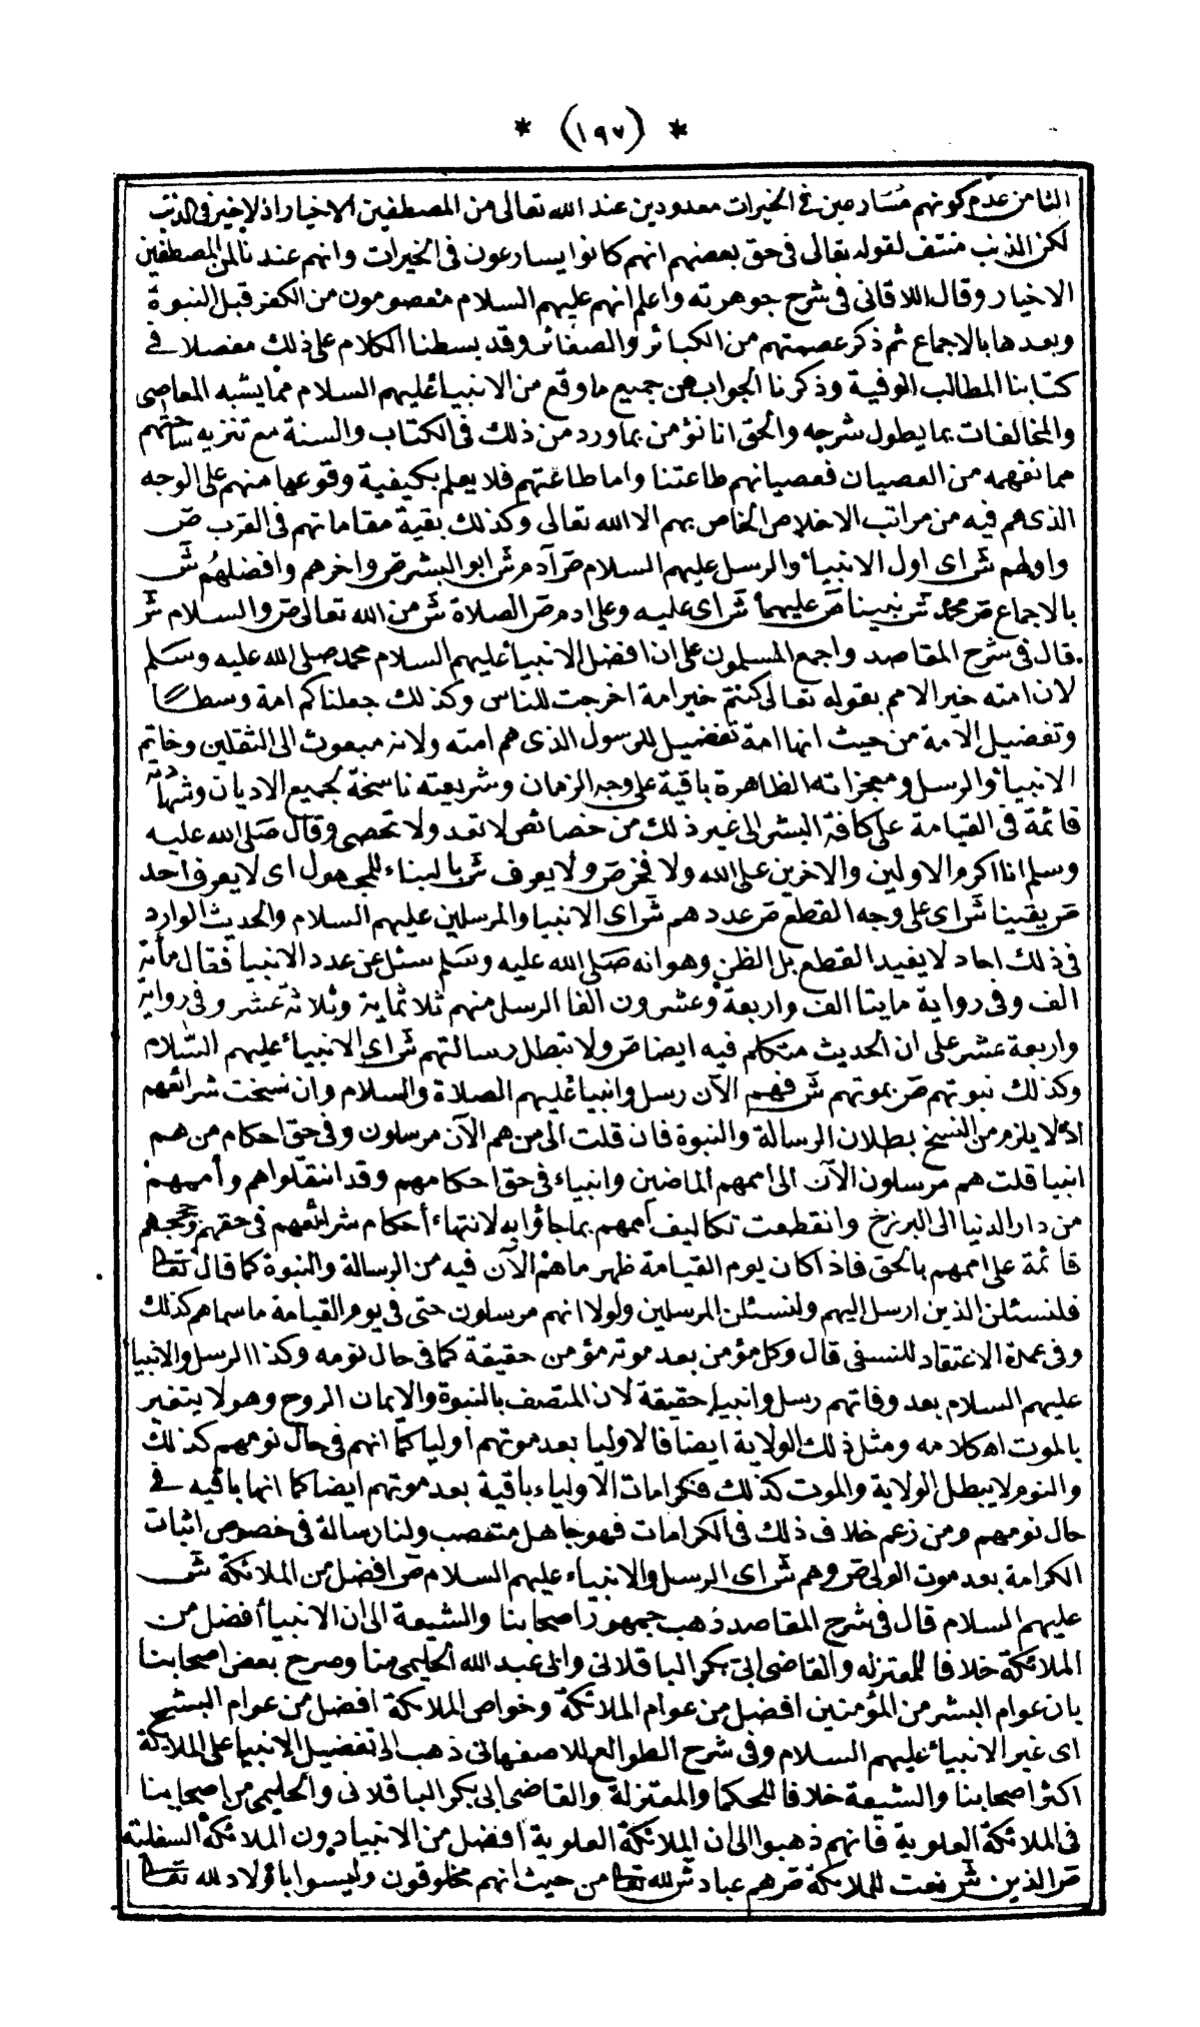 * (١٩٧) *
الثامن عدم كونهم مسارعين في الخيرات معدودين عند الله تعالى من المصطفين الاخيار اذ لاخير في الذنب
لكن الذنب منتف لقوله تعالى في حق بعضهم انهم كانوا يسارعون في الخيرات وانهم عندنا لمن المصطفين
الاخيار وقال اللاقاني في شرح جوهرته واعلم انهم عليهم السلام معصومون من الكفر قبل النبوة
وبعدها بالاجماع ثم ذكر عصمتهم من الكبائر والصغائر وقد بسطنا الكلام على ذلك مفصلا في
كتابنا المطالب الوفية وذكرنا الجواب عن جميع ما وقع من الانبياء عليهم السلام مما يشبه المعاصي
والمخالفات بما يطول شرحه والحق انا نؤمن بما ورد من ذلك في الكتاب والسنة مع تنزيه ساحتهم
مما نفهمه من العصيان فعصيانهم طاعتنا واما طاعتهم فلا يعلم بكيفية وقوعها منهم على الوجه
الذي هم فيه من مراتب الاخلاص الخاص بهم الا الله تعالى وكذلك بقية مقاماتهم في القرب ص
واولهم ش اى اول الانبياء والرسل عليهم السلام ص آدم ش ابو البشر ص واخرهم وافضلهم ش
بالاجماع ص محمد ش نبينا ص عليهما ش اى عليه وعلى ادم ص الصلاة ش من الله تعالى ص والسلام ش
قال في شرح المقاصد واجمع المسلمون على ان افضل الانبياء عليهم السلام محمد صلى الله عليه وسلم
لان امته خير الامم بقوله تعالى كنتم خير امة اخرجت للناس وكذلك جعلناكم امة وسطا
وتفضيل الامة من حيث انها امة تفضيل للرسول الذي هم امته ولانه مبعوث الى الثقلين وخاتم
الانبياء والرسل ومعجزاته الظاهرة باقية على وجه الزمان وشريعته ناسخة لجميع الاديان وشهادته
قائمة في القيامة على كافة البشر الى غير ذلك من خصائص لا تعد ولا تحصى وقال صلى الله عليه
وسلم انا اكرم الاولين والاخرين على الله ولا فخر ص ولا يعرف ش بالبناء للمجهول اى لا يعرف احد
ص يقينا ش اى على وجه القطع ص عددهم ش اى الانبيا والمرسلين عليهم السلام والحديث الوارد
في ذلك احاد لا يفيد القطع بل الظن وهو انه صلى الله عليه وسلم سئل عن عدد الانبيا فقال مأئة
الف وفي رواية مايتا الف واربعة وعشرون الفا الرسل منهم ثلاثماية وثلاثة عشر وفي رواية
واربعة عشر على ان الحديث متكلم فيه ايضا ص ولا تبطل رسالتهم ش اى الانبياء عليهم السلام
وكذلك نبوتهم ص بموتهم ش فهم الآن رسل وانبيا عليهم الصلاة والسلام وان نسخت شرائعهم
اذ لا يلزم من النسخ بطلان الرسالة والنبوة فان قلت الى من هم الآن مرسلون وفي حق احكام من هم
انبيا قلت هم مرسلون الآن الى اممهم الماضين وانبياء في حق احكامهم وقد انتقلوا هم وأممهم
من دار الدنيا الى البرزخ وانقطعت تكاليف أممهم بما جاؤا به لانتهاء أحكام شرائعهم في حقهم وحججهم
قائمة على اممهم بالحق فاذا كان يوم القيامة ظهر ما هم الآن فيه من الرسالة والنبوة كما قال تعا
فلنسئلن الذين ارسل اليهم ولنسئلن المرسلين ولولا انهم مرسلون حتى في يوم القيامة ما سماهم كذلك
وفي عمدة الاعتقاد للنسفى قال وكل مؤمن بعد موته مؤمن حقيقة كما في حال نومه وكذا الرسل والانبيا
عليهم السلام بعد وفاتهم رسل وانبياء حقيقة لان المتصف بالنبوة والايمان الروح وهو لا يتغير
بالموت اه كلامه ومثل ذلك الولاية ايضا فالاوليا بعد موتهم أوليا كما انهم في حال نومهم كذلك
والنوم لا يبطل الولاية والموت كذلك فكرامات الاولياء باقية بعد موتهم ايضا كما انها باقيه في
حال نومهم ومن زعم خلاف ذلك في الكرامات فهو جاهل متعصب ولنا رسالة في خصوص اثبات
الكرامة بعد موت الولى ص وهم ش اى الرسل والانبياء عليهم السلام ص افضل من الملائكة ش
عليهم السلام قال في شرح المقاصد ذهب جمهور اصحابنا والشيعة الى ان الانبيا أفضل من
الملائكة خلافا للمعتزله والقاضى ابي بكر الباقلانى وابى عبد الله الحليمى منا وصرح بعض اصحابنا
بان عوام البشر من المؤمنين افضل من عوام الملائكة وخواص الملائكة افضل من عوام البشر
اى غير الانبياء عليهم السلام وفي شرح الطوالع للاصفهانى ذهب الى تفضيل الانبيا على الملائكة
اكثر اصحابنا والشيعة خلافا للحكما والمعتزلة والقاضى ابى بكر الباقلانى والحليمى من اصحابنا
في الملائكة العلوية فانهم ذهبوا الى ان الملائكة العلوية أفضل من الانبيا دون الملائكة السفلية
ص الذين ش نعت للملائكة ص هم عباد ش لله تعا من حيث انهم مخلوقون وليسوا باولاد لله تعا